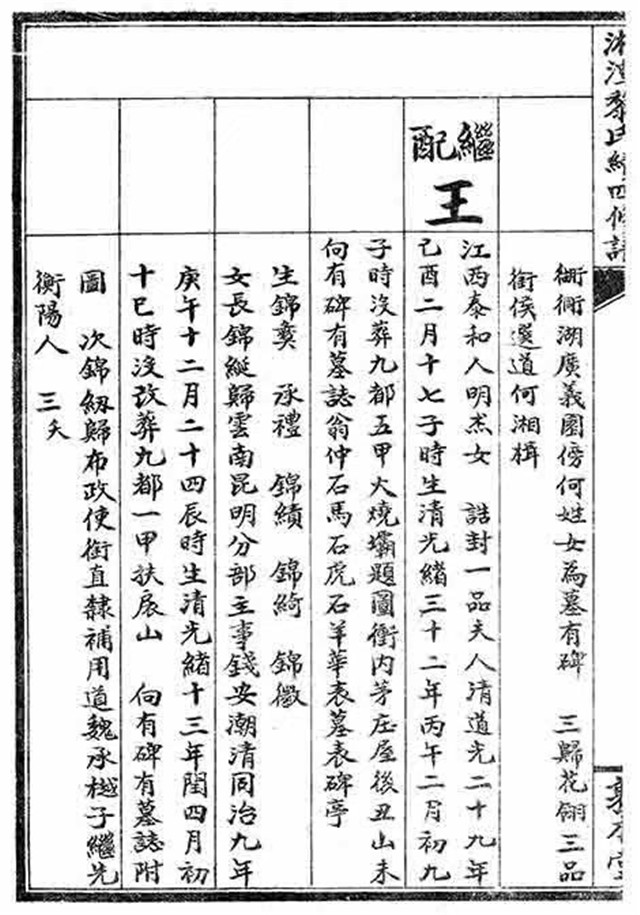 湘潭黎氏續四修譜
衡衢湖廣義園傍何姓女為墓有碑　三歸花翎三品
銜候選道何湘楫
繼配
王
江西泰和人明杰女　誥封一品夫人清道光二十九年
己酉二月十七子時生清光緒三十二年丙午二月初九
子時沒葬九都五甲火燒壩題圖衝內茅庄屋後丑山未
向有碑有墓誌翁仲石馬石虎石羊華表墓表碑亭
生錦彝　承禮　錦繢　錦綺　錦徽
女長錦綖歸雲南昆明分部主事錢安潮清同治九年
庚午十二月二十四辰時生清光緒十三年閏四月初
十巳時沒改葬九都一甲扶　山　向有碑有墓誌附
圖　次錦紉歸布政使銜直隸補用道魏承樾子繼先
衡陽人　三夭
堂